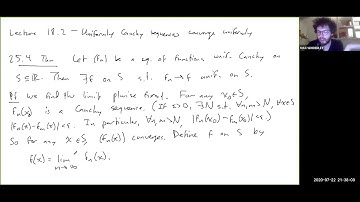 Lecture 18.2 - Uniformly Cauchy sequences converge uniformly
25.4 Thm Let (fn) be a seq. of functions unif. Cauchy on
S⊆ℝ. Then ∃f on S s.t. fn→f unif. on S.
Pf We find the limit ptwise first. For any x₀∈S,
fn(x₀) is a Cauchy sequence. (If ε>0, ∃N s.t. ∀n,m>N, ∀x∈S
|fn(x)-fm(x)|<ε. In particular, ∀n,m>N, |fn(x₀)-fm(x₀)|<ε)
So for any x∈S, (fn(x)) converges. Define f on S by
f(x) = lim fn(x).
n→∞
2020-07-22 21:38:00